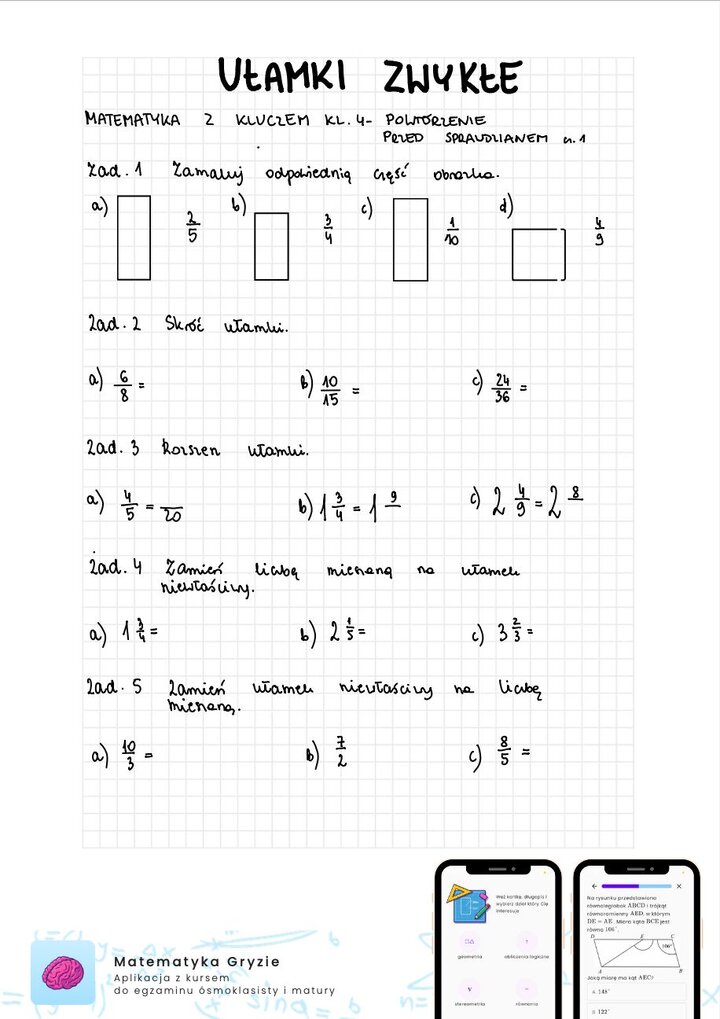 UŁAMKI ZWYKŁE
MATEMATYKA Z KLUCZEM KL. 4- POWTÓRZENIE
PRZED SPRAWDZIANEM cz. 1
Zad. 1 Zamaluj odpowiednią część obrazka.
a) 2/5 b) 3/4 c) 1/10 d) 4/9
Zad. 2 Skróć ułamki.
a) 6/8 = b) 10/15 = c) 24/36 =
Zad. 3 Rozszerz ułamki.
a) 4/5 = /20 b) 1 3/4 = 1 9/ c) 2 4/9 = 2 8/
Zad. 4 Zamień liczbę mieszaną na ułamek
niewłaściwy.
a) 1 3/4 = b) 2 1/5 = c) 3 2/3 =
Zad. 5 Zamień ułamek niewłaściwy na liczbę
mieszaną.
a) 10/3 = b) 7/2 c) 8/5 =
Matematyka Gryzie
Aplikacja z kursem
do egzaminu ósmoklasisty i matury
Weź kartkę, długopis i
wybierz dział który Cię
interesuje
geometria obliczenia logiczne
stereometria równania
Na rysunku przedstawiono
równoległobok ABCD i trójkąt
równoramienny AED, w którym
DE = AE. Miara kąta BCE jest
równa 106°.
D E C
106°
A B
Jaką miarę ma kąt AEC?
A. 148°
B. 122°